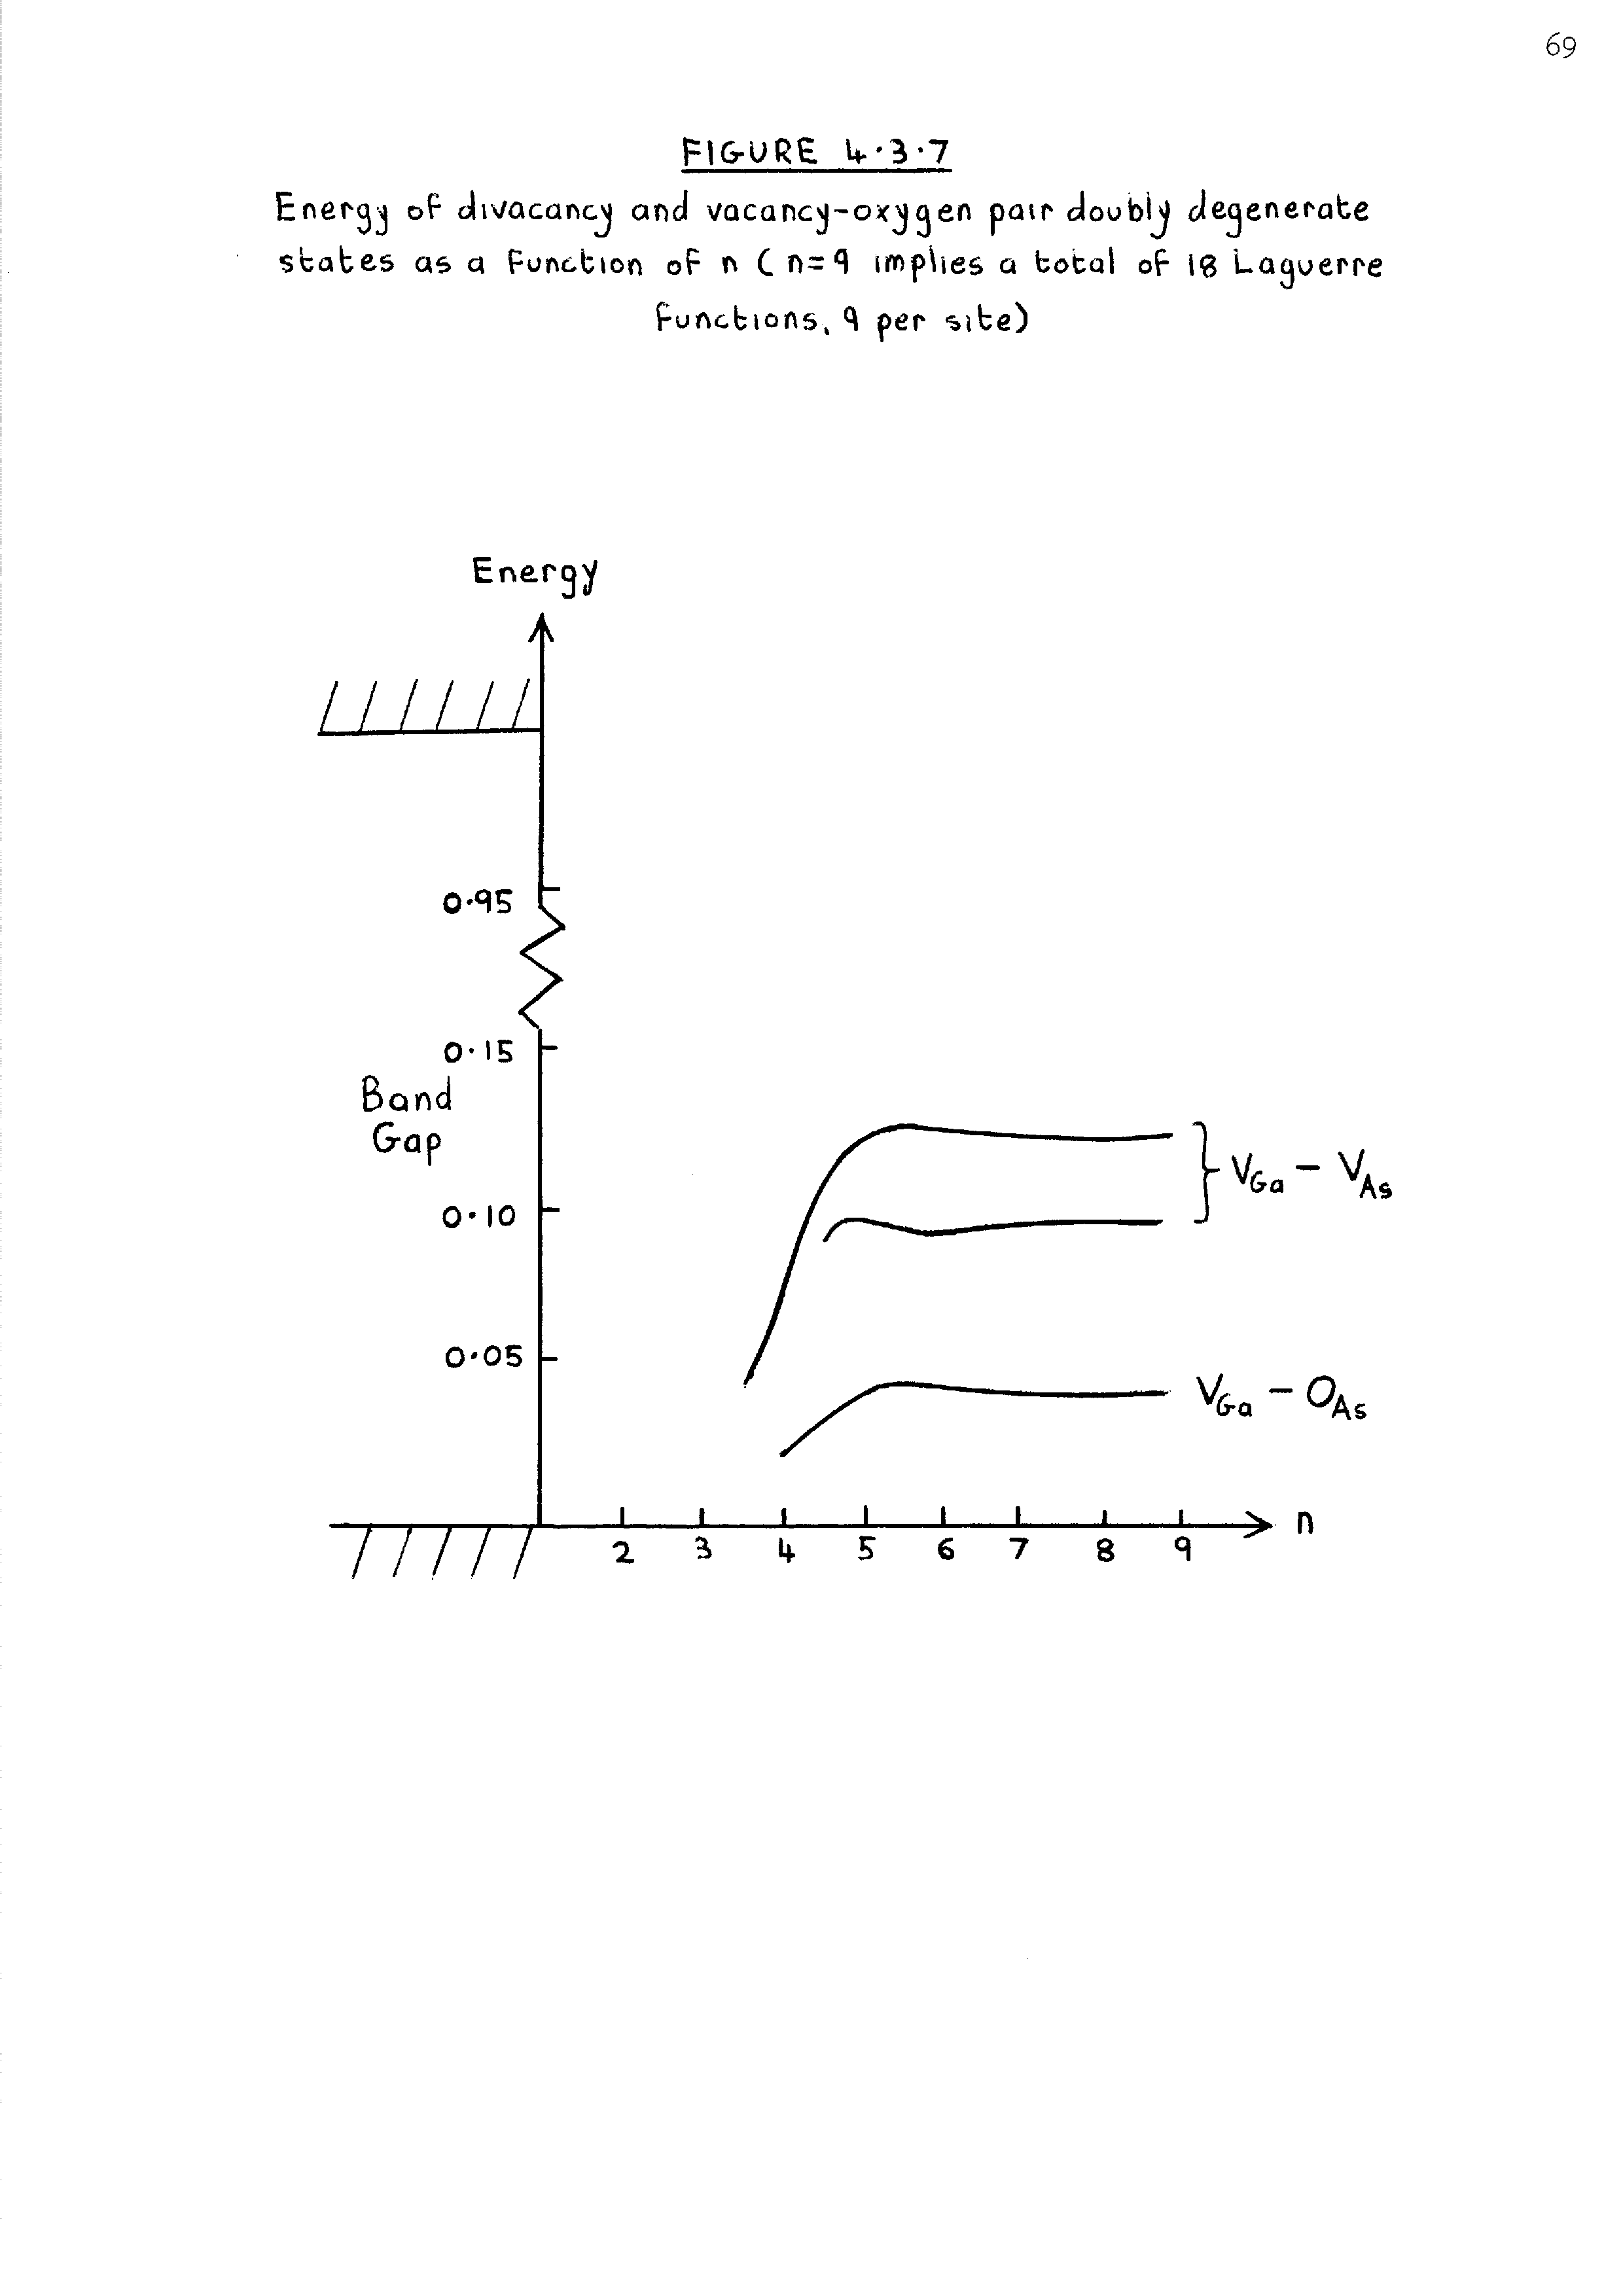 69
FIGURE 4·3·7
Energy of divacancy and vacancy-oxygen pair doubly degenerate
states as a function of n ( n=9 implies a total of 18 Laguerre
functions, 9 per site)
Energy
0·95
0·15
Band
Gap
V_Ga - V_As
0·10
0·05
V_Ga - O_As
n
2 3 4 5 6 7 8 9